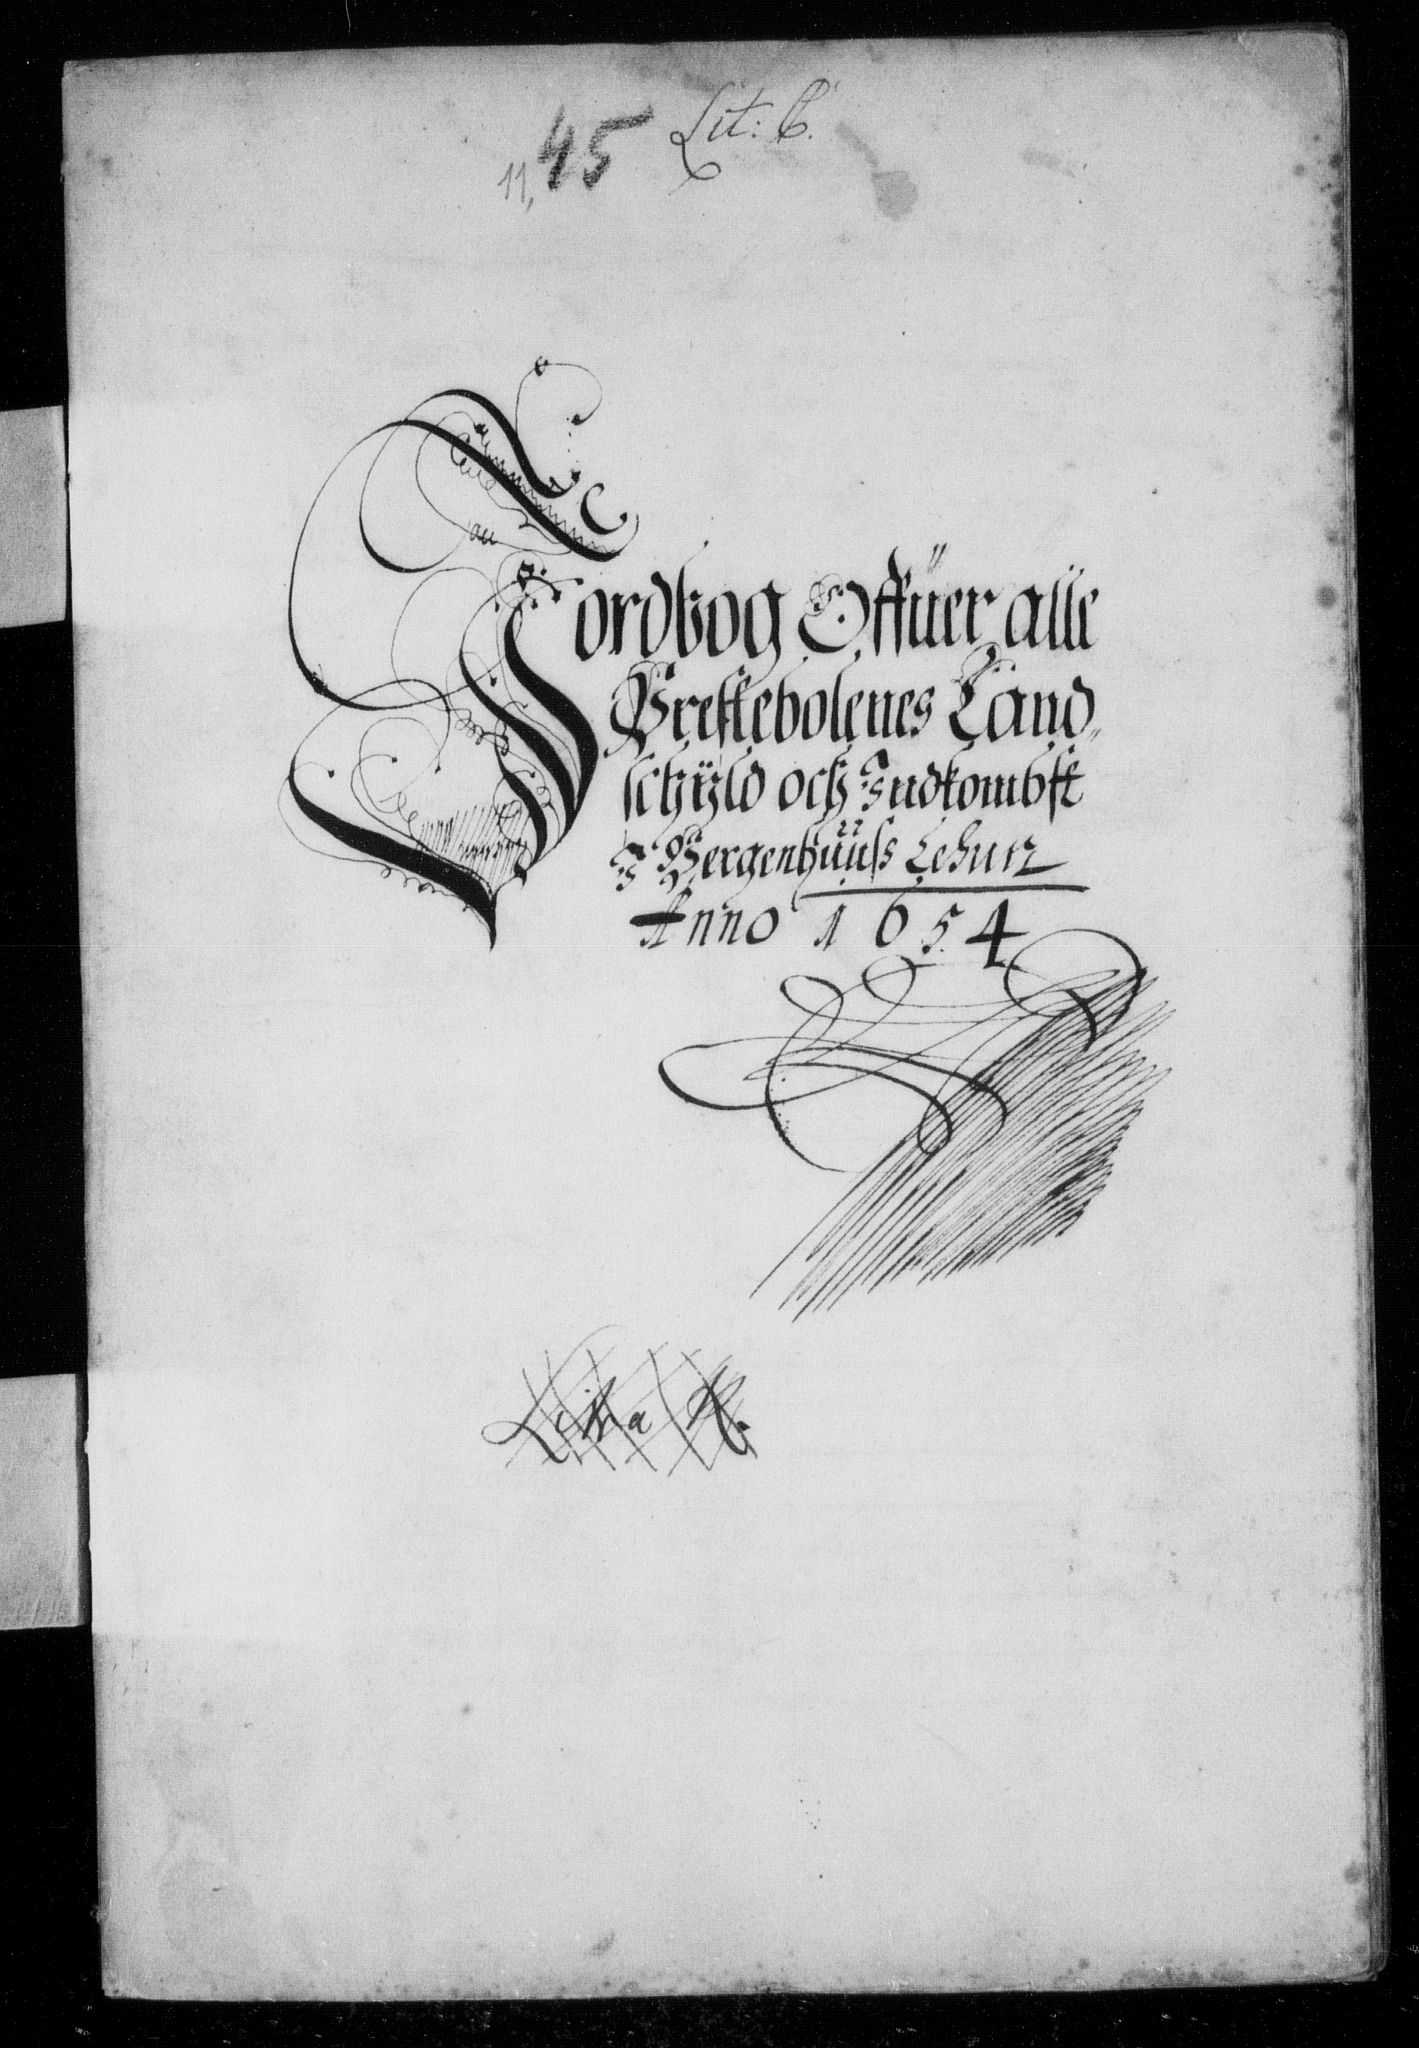 11, 45 Lit: C.
Jordbog Offüer alle
Prestebolenes Land„
schÿld och Indkombst
I Bergenhüüss Lehnn
Anno 1654
Litra A.